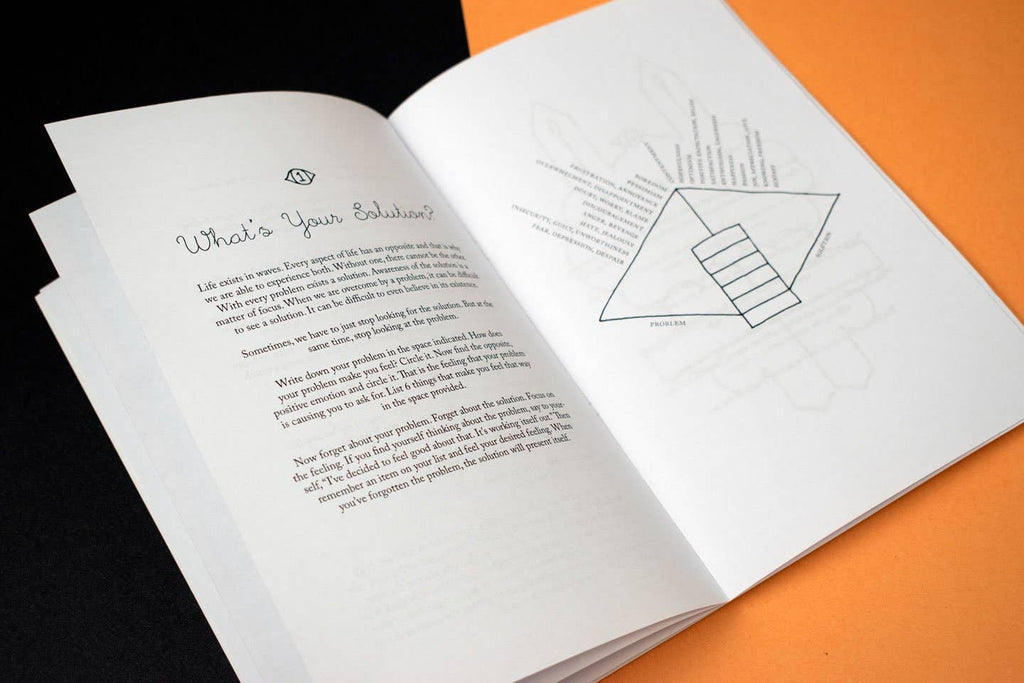 1
What's Your Solution?
Life exists in waves. Every aspect of life has an opposite and that is why
we are able to experience both. Without one, there cannot be the other.
With every problem exists a solution. Awareness of the solution is a
matter of focus. When we are overcome by a problem, it can be difficult
to see a solution. It can be difficult to even believe in its existence.
Sometimes, we have to just stop looking for the solution. But at the
same time, stop looking at the problem.
Write down your problem in the space indicated. How does
your problem make you feel? Circle it. Now find the opposite,
positive emotion and circle it. That is the feeling that your problem
is causing you to ask for. List 6 things that make you feel that way
in the space provided.
Now forget about your problem. Forget about the solution. Focus on
the feeling. If you find yourself thinking about the problem, say to your-
self, “I've decided to feel good about that. It's working itself out.” Then
remember an item on your list and feel your desired feeling. When
you've forgotten the problem, the solution will present itself.
BOREDOM
PESSIMISM
FRUSTRATION, ANNOYANCE
OVERWHELMENT, DISAPPOINTMENT
DOUBT, WORRY, BLAME
DISCOURAGEMENT
ANGER, REVENGE
HATE, JEALOUSY
INSECURITY, GUILT, UNWORTHINESS
FEAR, DEPRESSION, DESPAIR
HOPEFULNESS
OPTIMISM
PROBLEM
SOLUTION